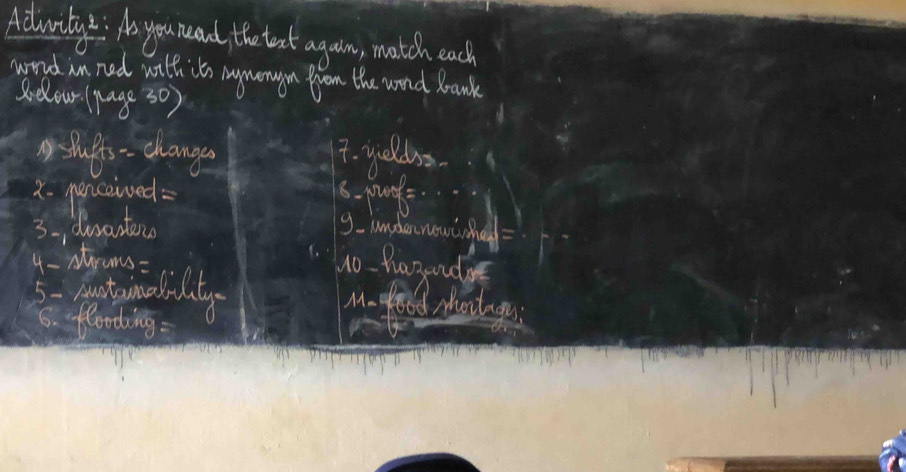 Activity 2: As you read, the text again, match each
word in red with its synonym from the word bank
below. (page 30)
1) shifts = changes
2- perceived =
3-, disasters
4- storms =
5- sustainability =
6. flooding =
7- yields = - . .
8- proof = . . . .
9- undernourished = - - -
10- hazards =
11- food shortages: